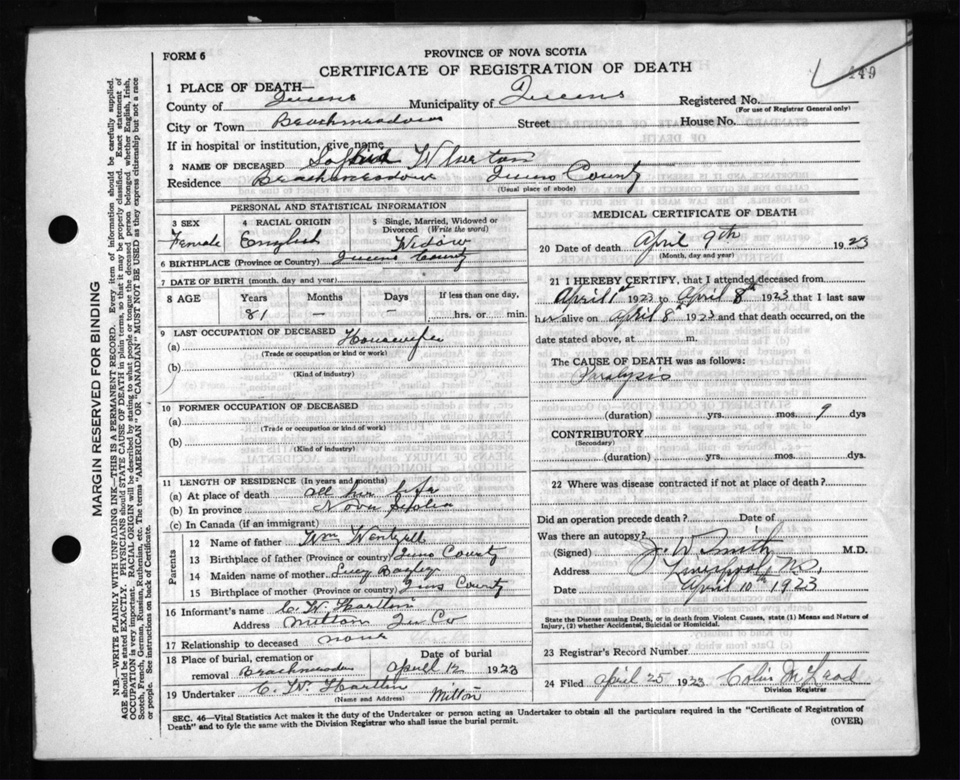 PROVINCE OF NOVA SCOTIA
FORM 6
CERTIFICATE OF REGISTRATION OF DEATH
149
1 PLACE OF DEATH—
County of Queens Municipality of Queens Registered No.
(For use of Registrar General only)
City or Town Beachmeadows Street House No.
If in hospital or institution, give name
2 NAME OF DECEASED
Residence Beachmeadows Queens County
(Usual place of abode)
PERSONAL AND STATISTICAL INFORMATION
3 SEX
Female
4 RACIAL ORIGIN
English
5 Single, Married, Widowed or Divorced (Write the word)
Widow
6 BIRTHPLACE (Province or Country) Queens County
7 DATE OF BIRTH (month. day and year)
8 AGE Years Months Days If less than one day,
81 — — hrs. or min.
9 LAST OCCUPATION OF DECEASED
(a) Housewife
(Trade or occupation or kind or work)
(b)
(Kind of industry)
10 FORMER OCCUPATION OF DECEASED
(a)
(Trade or occupation or kind or work)
(b)
(Kind of industry)
11 LENGTH OF RESIDENCE (In years and months)
(a) At place of death all her life
(b) In province Nova Scotia
(c) In Canada (if an immigrant)
Parents
12 Name of father Wm Wentzell
13 Birthplace of father (Province or country) Queens County
14 Maiden name of mother Lucy
15 Birthplace of mother (Province or country) Queens County
16 Informant's name C. W.
Address Milton Qu Co
17 Relationship to deceased none
18 Place of burial, cremation or removal Beachmeadows
Date of burial
April 12 1923
19 Undertaker C. W. Milton
(Name and Address)
MEDICAL CERTIFICATE OF DEATH
20 Date of death April 9th 1923
(Month, day and year)
21 I HEREBY CERTIFY, that I attended deceased from
April 1st 1923 to April 8th 1923 that I last saw
her alive on April 8th 1923 and that death occurred, on the
date stated above, at m.
The CAUSE OF DEATH was as follows:
Paralysis
(duration) yrs. mos. 9 dys
CONTRIBUTORY
(Secondary)
(duration) yrs. mos. dys.
22 Where was disease contracted if not at place of death?
Did an operation precede death? Date of
Was there an autopsy?
(Signed) J. W. Smith M.D.
Address Liverpool, N.S.
Date April 10th 1923
State the Disease causing Death, or in death from Violent Causes, state (1) Means and Nature of Injury, (2) whether Accidental, Suicidal or Homicidal.
23 Registrar's Record Number
24 Filed april 25 1923 Colin McLeod
Division Registrar
SEC. 46—Vital Statistics Act makes it the duty of the Undertaker or person acting as Undertaker to obtain all the particulars required in the "Certificate of Registration of
Death" and to fyle the same with the Division Registrar who shall issue the burial permit.
(OVER)
MARGIN RESERVED FOR BINDING
N.B.—WRITE PLAINLY WITH UNFADING INK—THIS IS A PERMANENT RECORD. Every item of information should be carefully supplied.
AGE should be stated EXACTLY. PHYSICIANS should STATE CAUSE OF DEATH in plain terms, so that it may be properly classified. Exact statement of
OCCUPATION is very important. RACIAL ORIGIN will be described by stating to what people or tongue the deceased person belonged whether English, Irish,
Scotch, French, German, Russian, Ruthenian, etc. The terms "AMERICAN" OR "CANADIAN" MUST NOT BE USED as they express citizenship but not a race
or people. See instructions on back of Certificate.